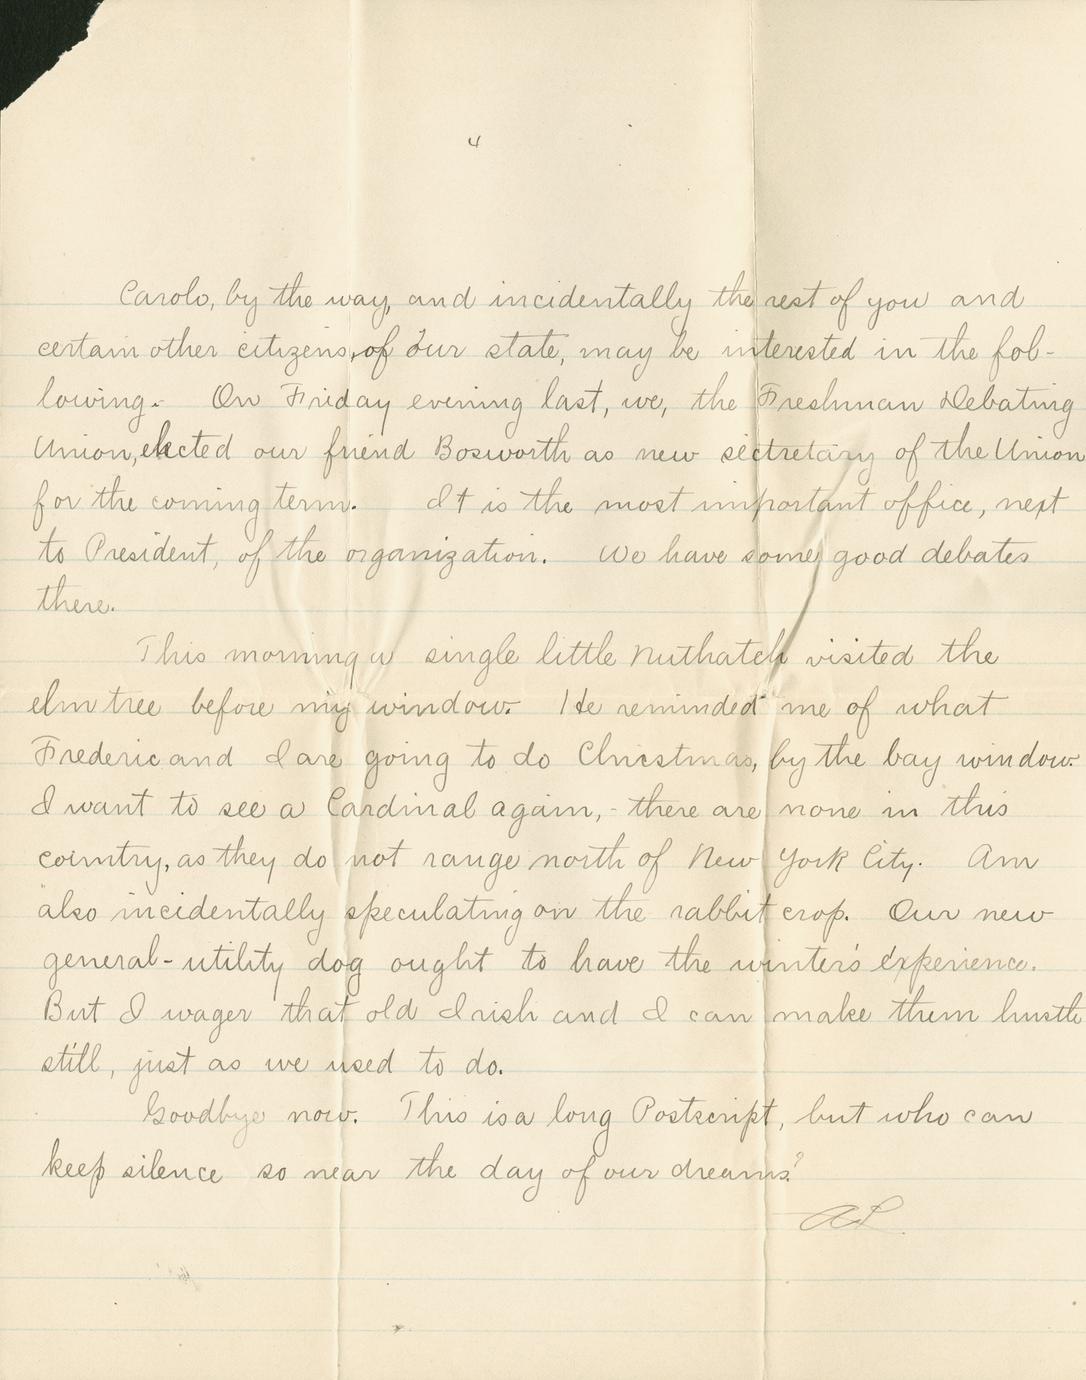 4
Carolo, by the way, and incidentally the rest of you and
certain other citizens, of our state, may be interested in the fol-
lowing.- On Friday evening last, we, the Freshman Debating
Union, elected our friend Bosworth as new secretary of the Union
for the coming term. It is the most important office, next
to President, of the organization. We have some good debates
there.
This morning a single little Nuthatch visited the
elm tree before my window. He reminded me of what
Frederic and I are going to do Christmas, by the bay window.
I want to see a Cardinal again, - there are none in this
country, as they do not range north of New York City. Am
also incidentally speculating on the rabbit crop. Our new
general-utility dog ought to have the winter's experience.
But I wager that old Irish and I can make them hustle
still, just as we used to do.
Goodbye now. This is a long Postscript, but who can
keep silence so near the day of our dreams?
AL